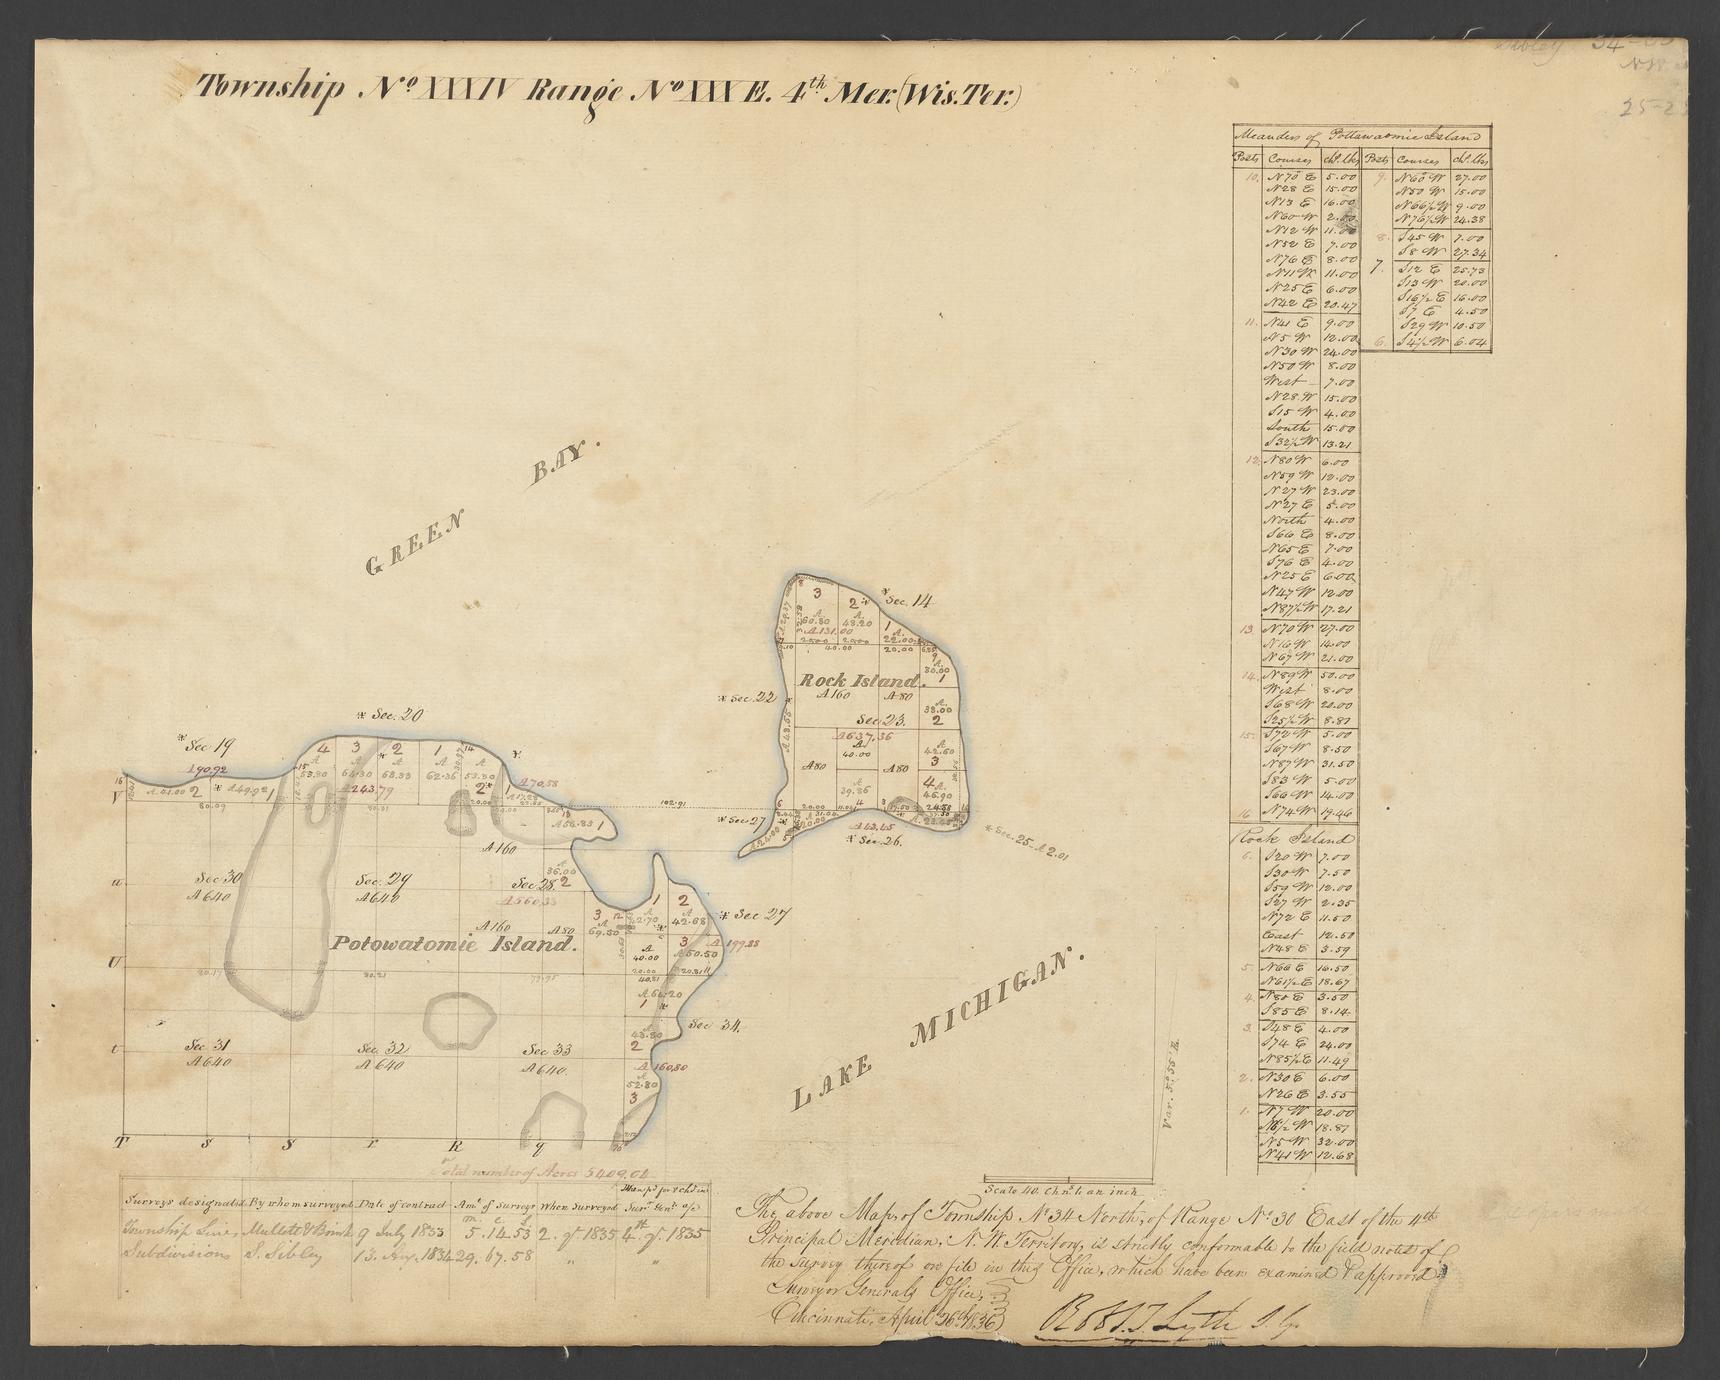 Township No XXXIV Range No XXX E. 4th Mer. (Wis. Ter.)
Meanders of Pottawaomie Island
Posts Courses ch. lks Posts Courses ch. lks
10. N70 E 5.00
N28 E 15.00
N13 E 16.00
N60 W 2.00
N12 W 11.00
N52 E 7.00
N76 E 8.00
N11 W 11.00
N25 E 6.00
N42 E 20.47
11. N41 E 9.00
N5 W 12.00
N30 W 24.00
N50 W 8.00
West 7.00
N28 W 15.00
S15 W 4.00
South 15.00
S32½ W 13.21
12. N80 W 6.00
N59 W 12.00
N27 W 23.00
N27 E 5.00
North 4.00
S66 E 8.00
N65 E 7.00
S76 E 4.00
N25 E 6.00
N47 W 12.00
N87½ W 17.21
13. N70 W 27.00
N16 W 14.00
N67 W 21.00
14. N89 W 50.00
West 8.00
S68 W 20.00
S25½ W 8.87
15. S72 W 5.00
S67 W 8.50
N87 W 31.50
S83 W 5.00
S66 W 14.00
16 N74 W 19.46
9. N60 W 27.00
N50 W 15.00
N66½ W 9.00
N76½ W 24.38
8. S45 W 7.00
S8 W 27.34
7. S12 E 25.73
S13 W 20.00
S16½ E 16.00
S7 E 4.50
S29 W 10.50
6. S4½ W 6.04
Rock Island
6. S20 W 7.00
S30 W 7.50
S59 W 12.00
S27 W 2.35
N72 E 11.50
East 12.50
N48 E 3.59
5. N66 E 16.50
N61½ E 18.67
4. N80 E 3.50
S85 E 8.14
3. S48 E 4.00
S74 E 24.00
N85½ E 11.49
2. N30 E 6.00
N26 E 3.55
1. N7 W 20.00
N6½ W 18.87
N5 W 32.00
N41 W 12.68
GREEN BAY.
Sec. 14
3
2
1
A 60.80
A 48.20
A 131.00
40.00 20.00
Rock Island.
A 160 A 80
Sec. 22
Sec. 23.
A 637.36
A 40.00
A 80 A 80
A 39.86
A 30.00
1
A 38.00
2
A 42.60
3
4
A 46.90
Sec. 27
Sec. 26.
Sec. 25 - A 2.01
Sec. 20
Sec 19
190.92
4 3 2 1
A 53.80
A 243.79
A 62.36
A 70.58
102.91
A 56.83 1
A 160
A 36.00
Sec. 30
A 640
Sec. 29
A 640
Sec. 28. 2
A 560.33
A 160 A 80
3
A 69.50
1 2
A 42.68
Sec 27
A 199.88
3
A 50.50
A 40.00
Potowatomie Island.
1
Sec 34.
2
A 160.80
A 52.80
3
Sec 31
A 640
Sec 32
A 640
Sec 33
A 640.
V
u
U
t
T S S r R q
LAKE MICHIGAN.
Var. 5°55' E.
Total number of Acres 5409.04
Scale 40. Chns to an inch
Surveys designated By whom surveyed Date of contract Amt of surveys When surveyed
Township Lines Mullett & Brink 9 July 1833 5.14.53 2. qr 1835 4th qr. 1835
Subdivisions S. Sibley 13. Aug. 1834 29. 67. 58 " "
The above Map, of Township No 34 North, of Range No 30 East of the 4th
Principal Meridian, N. W. Territory, is strictly conformable to the field notes of
the survey thereof on file in this Office, which have been examined & approved.
Surveyor General's Office,
Cincinnati, April 26th 1836
Robt. T. Lytle S. G.